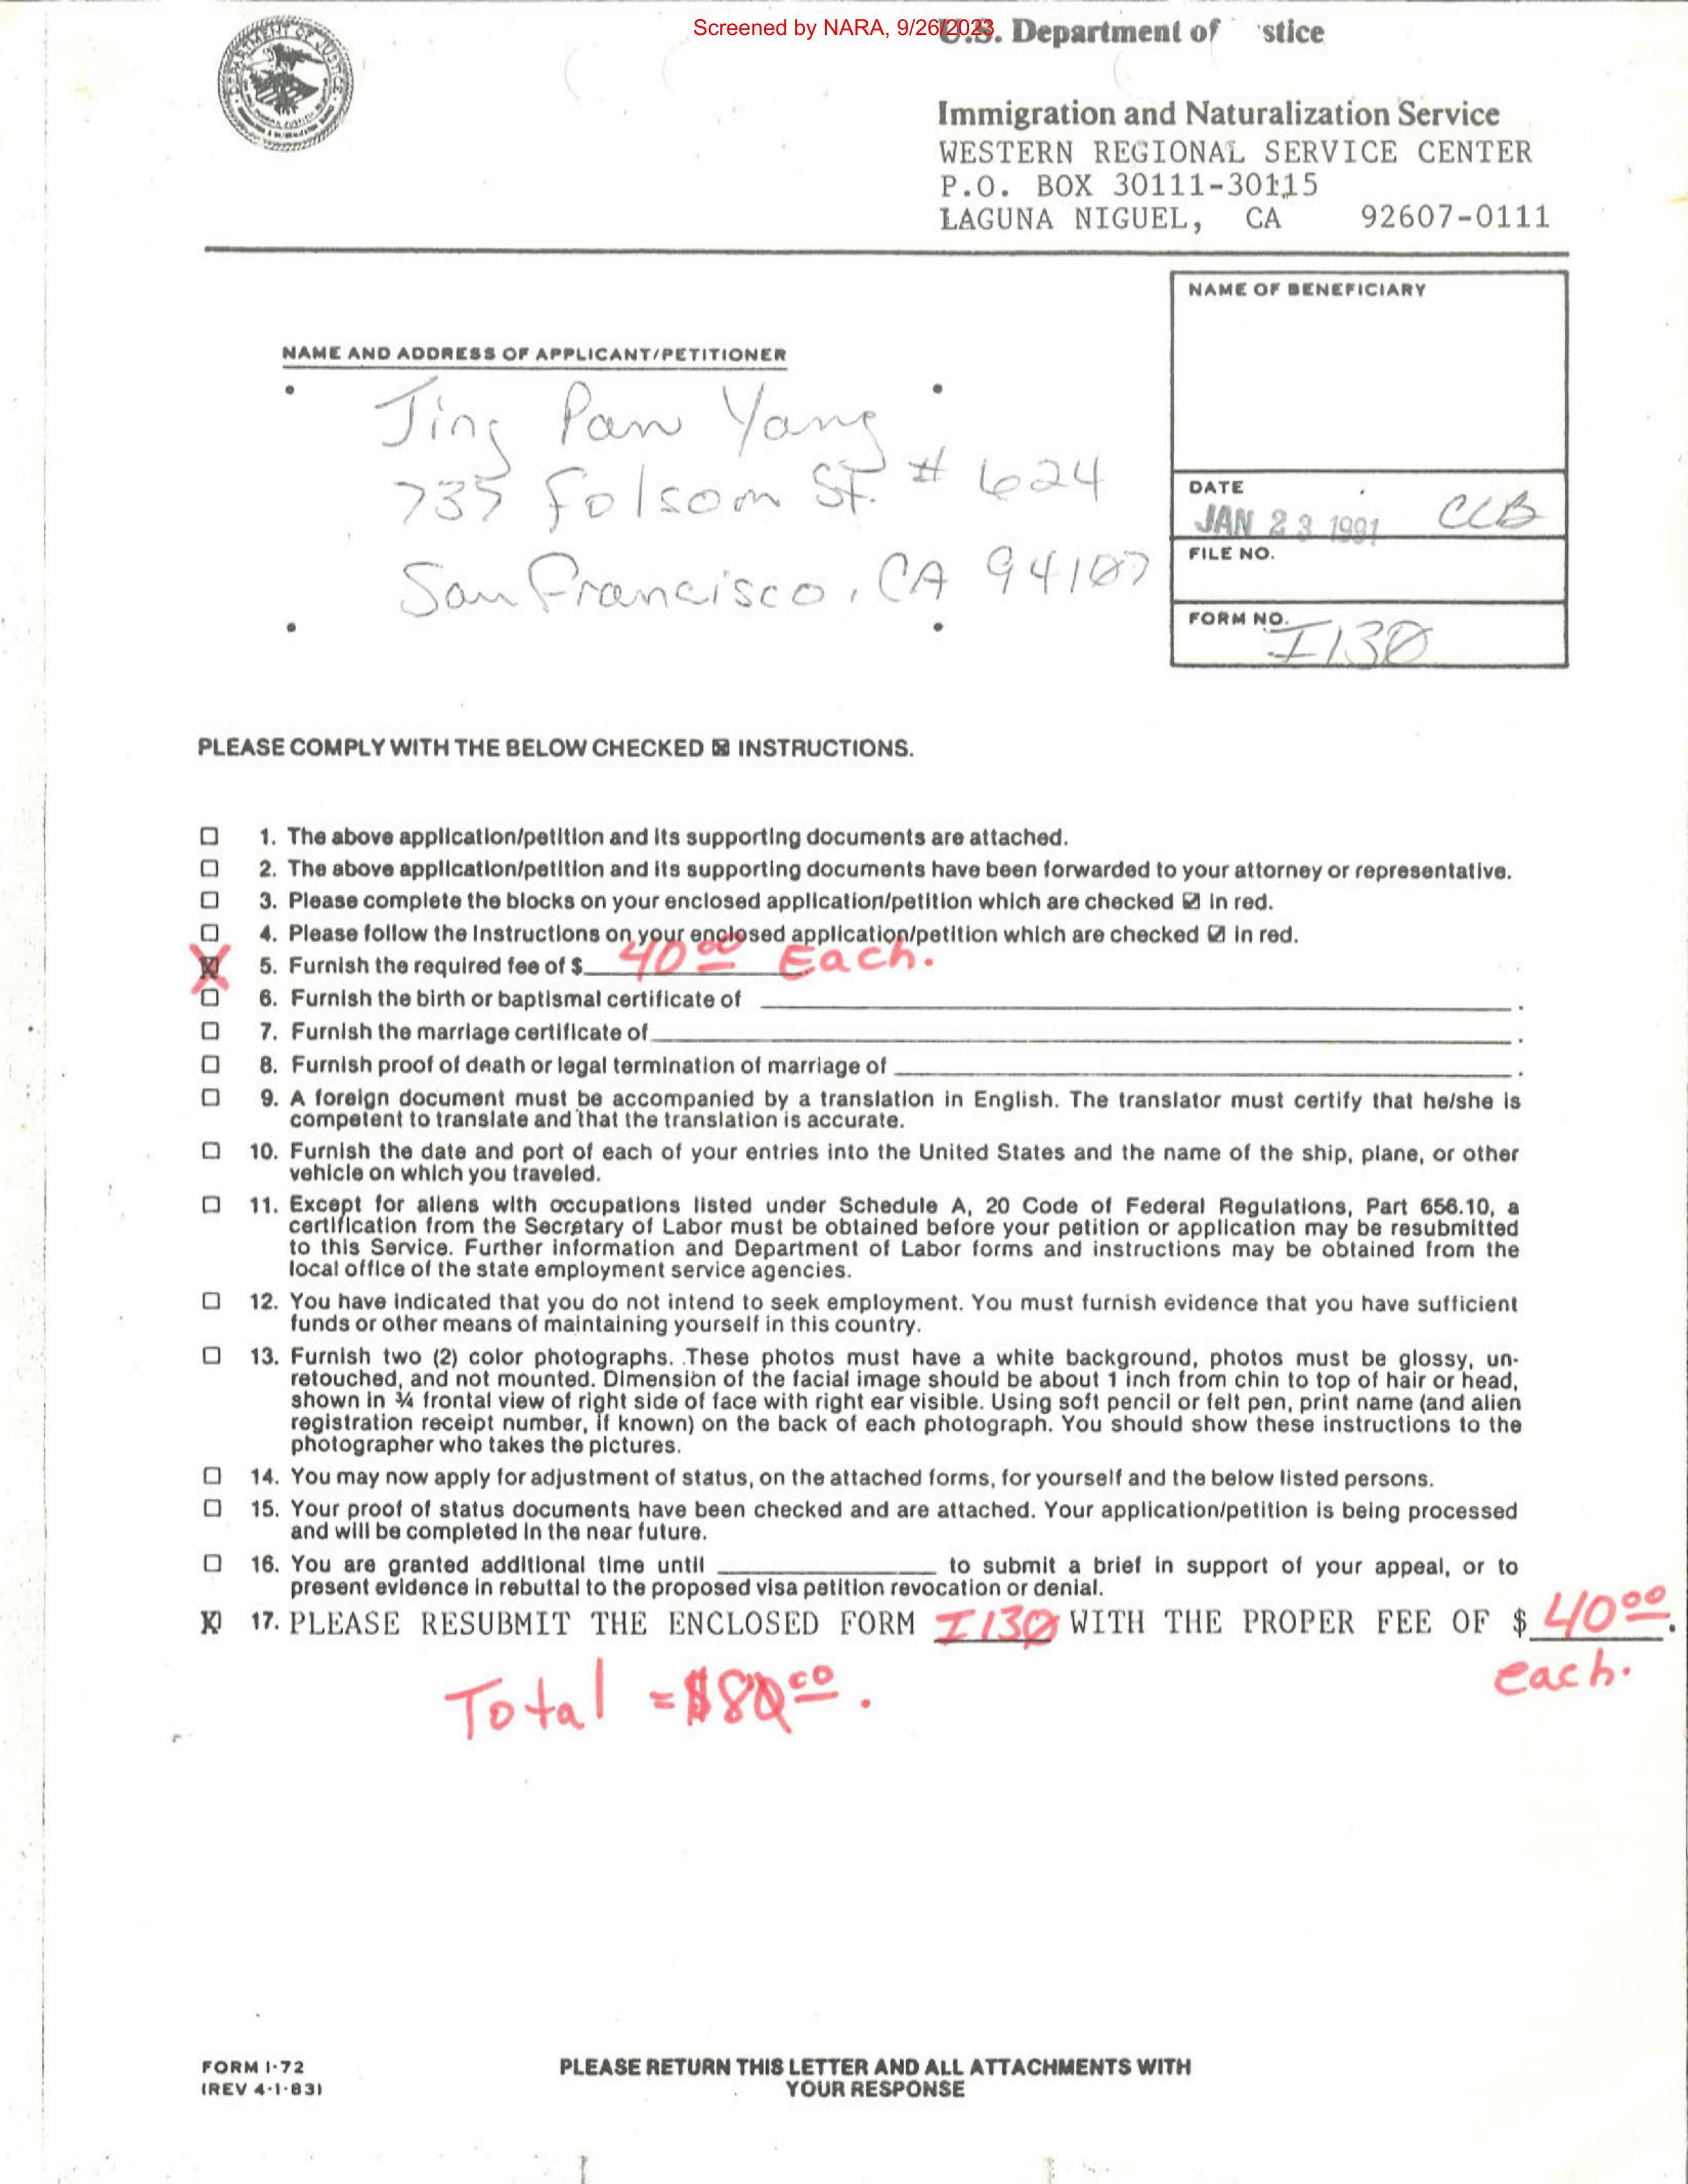 Screened by NARA, 9/26/2023
U.S. Department of stice
Immigration and Naturalization Service
WESTERN REGIONAL SERVICE CENTER
P.O. BOX 30111-30115
LAGUNA NIGUEL, CA 92607-0111
NAME OF BENEFICIARY
NAME AND ADDRESS OF APPLICANT/PETITIONER
Jing Pan Yang
735 Folsom St. # 624
San Francisco, CA 94107
DATE
JAN 23 1991 CCB
FILE NO.
FORM NO.
I130
PLEASE COMPLY WITH THE BELOW CHECKED ☒ INSTRUCTIONS.
☐ 1. The above application/petition and its supporting documents are attached.
☐ 2. The above application/petition and its supporting documents have been forwarded to your attorney or representative.
☐ 3. Please complete the blocks on your enclosed application/petition which are checked ☑ in red.
☐ 4. Please follow the instructions on your enclosed application/petition which are checked ☑ in red.
☒ 5. Furnish the required fee of $ 40 00 Each.
☐ 6. Furnish the birth or baptismal certificate of ______.
☐ 7. Furnish the marriage certificate of ______.
☐ 8. Furnish proof of death or legal termination of marriage of ______.
☐ 9. A foreign document must be accompanied by a translation in English. The translator must certify that he/she is
competent to translate and that the translation is accurate.
☐ 10. Furnish the date and port of each of your entries into the United States and the name of the ship, plane, or other
vehicle on which you traveled.
☐ 11. Except for aliens with occupations listed under Schedule A, 20 Code of Federal Regulations, Part 656.10, a
certification from the Secretary of Labor must be obtained before your petition or application may be resubmitted
to this Service. Further information and Department of Labor forms and instructions may be obtained from the
local office of the state employment service agencies.
☐ 12. You have indicated that you do not intend to seek employment. You must furnish evidence that you have sufficient
funds or other means of maintaining yourself in this country.
☐ 13. Furnish two (2) color photographs. These photos must have a white background, photos must be glossy, un-
retouched, and not mounted. Dimension of the facial image should be about 1 inch from chin to top of hair or head,
shown in ¾ frontal view of right side of face with right ear visible. Using soft pencil or felt pen, print name (and alien
registration receipt number, if known) on the back of each photograph. You should show these instructions to the
photographer who takes the pictures.
☐ 14. You may now apply for adjustment of status, on the attached forms, for yourself and the below listed persons.
☐ 15. Your proof of status documents have been checked and are attached. Your application/petition is being processed
and will be completed in the near future.
☐ 16. You are granted additional time until ______ to submit a brief in support of your appeal, or to
present evidence in rebuttal to the proposed visa petition revocation or denial.
☒ 17. PLEASE RESUBMIT THE ENCLOSED FORM I130 WITH THE PROPER FEE OF $ 40 00.
each.
Total = $80 00.
FORM I-72
(REV 4-1-83)
PLEASE RETURN THIS LETTER AND ALL ATTACHMENTS WITH
YOUR RESPONSE